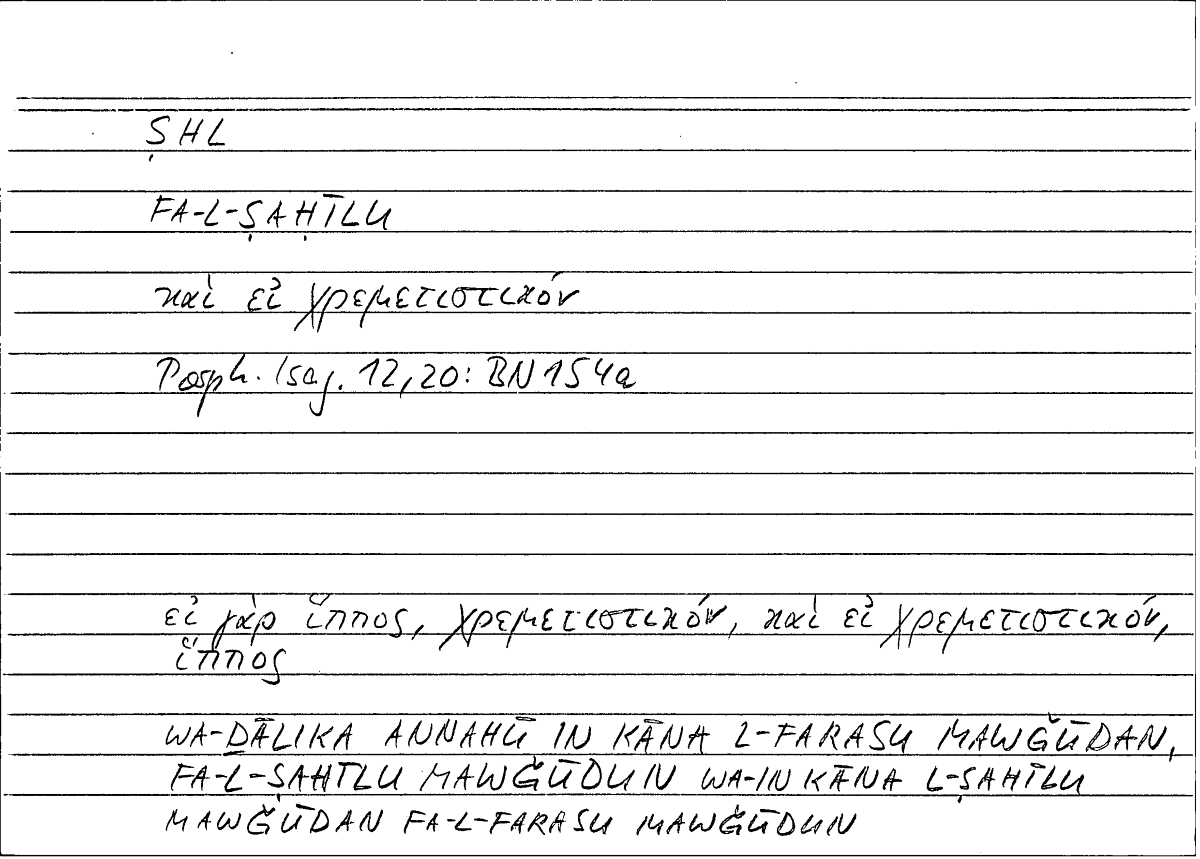 ṢHL
FA-L-ṢAḤĪLU
καὶ εἰ χρεμετιστικόν
Porph. Isag. 12,20: BN 154a
εἰ γὰρ ἵππος, χρεμετιστικόν, καὶ εἰ χρεμετιστικόν,
ἵππος
WA-ḎĀLIKA ANNAHŪ IN KĀNA L-FARASU MAWǦŪDAN,
FA-L-ṢAHĪLU MAWǦŪDUN WA-IN KĀNA L-ṢAHĪLU
MAWǦŪDAN FA-L-FARASU MAWǦŪDUN